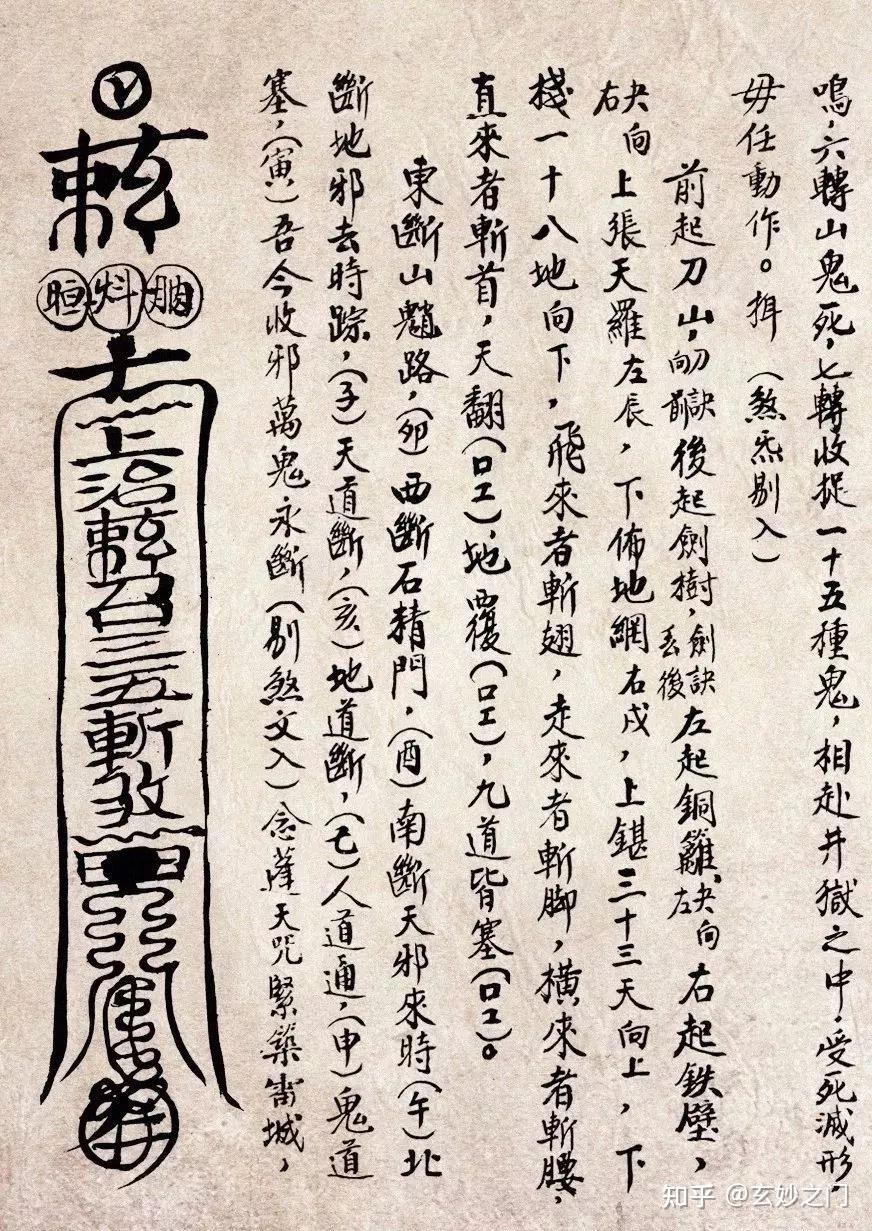 鳴，六轉山鬼死，七轉收捉一十五種鬼，相赴井獄之中，受死滅形，
毋任動作。揖（煞炁剔入）
前起刀山，刀訣向前後起劍樹，劍訣丟後左起銅籬，訣向左右起鉄壁，
訣向右上張天羅左辰，下佈地網右戌，上鍖三十三天向上，下
棧一十八地向下，飛來者斬翅，走來者斬脚，橫來者斬腰，
直來者斬首，天翻（口工），地覆（口工），九道皆塞（口工）。
東斷山魈路，（卯）西斷石精門，（酉）南斷天邪來時（午）北
斷地邪去時踪，（子）天道斷，（亥）地道斷，（巳）人道通，（申）鬼道
塞，（寅）吾今收邪萬鬼永斷（剔煞文入）念蓬天咒緊築密城，
敕
上治敕召三五斬煞
知乎 @玄妙之门